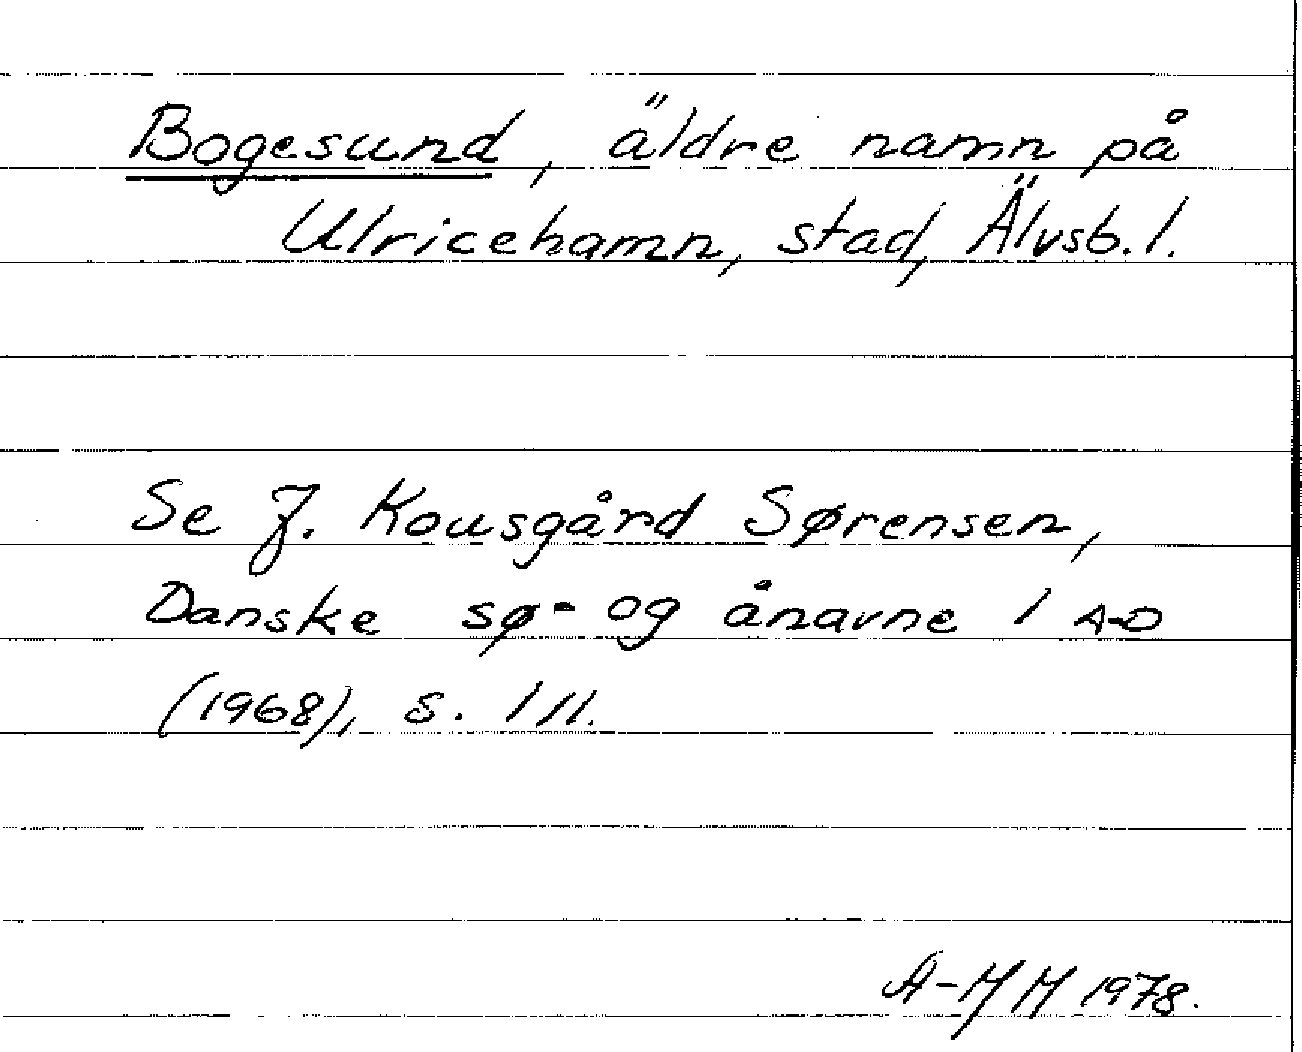 Bogesund, äldre namn på
Ulricehamn, stad, Älvsb. l.
Se J. Kousgård Sørensen,
Danske sø- og ånavne 1 A-D
(1968), s. 111.
A-MH 1978.